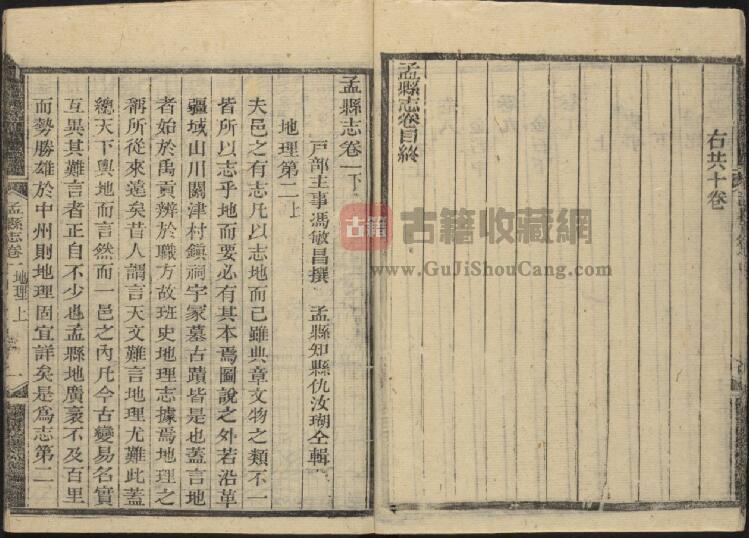 右共十卷
孟縣志卷目終
孟縣志卷一下
戸部主事馮敏昌撰 孟縣知縣仇汝瑚仝輯
地理第二上
夫邑之有志凡以志地而已雖典章文物之類不一
皆所以志乎地而要必有其本焉圖說之外若沿革
疆域山川關津村鎮祠宇冢墓古蹟皆是也蓋言地
者始於禹貢辨於職方故班史地理志據焉地理之
稱所從來遠矣昔人謂言天文難言地理尤難此蓋
總天下輿地而言然而一邑之內凡今古變易名實
互異其難言者正自不少也孟縣地廣袤不及百里
而勢勝雄於中州則地理固宜詳矣是爲志第二
孟縣志卷一 地理上 一
古籍
古籍收藏網
www.GuJiShouCang.com